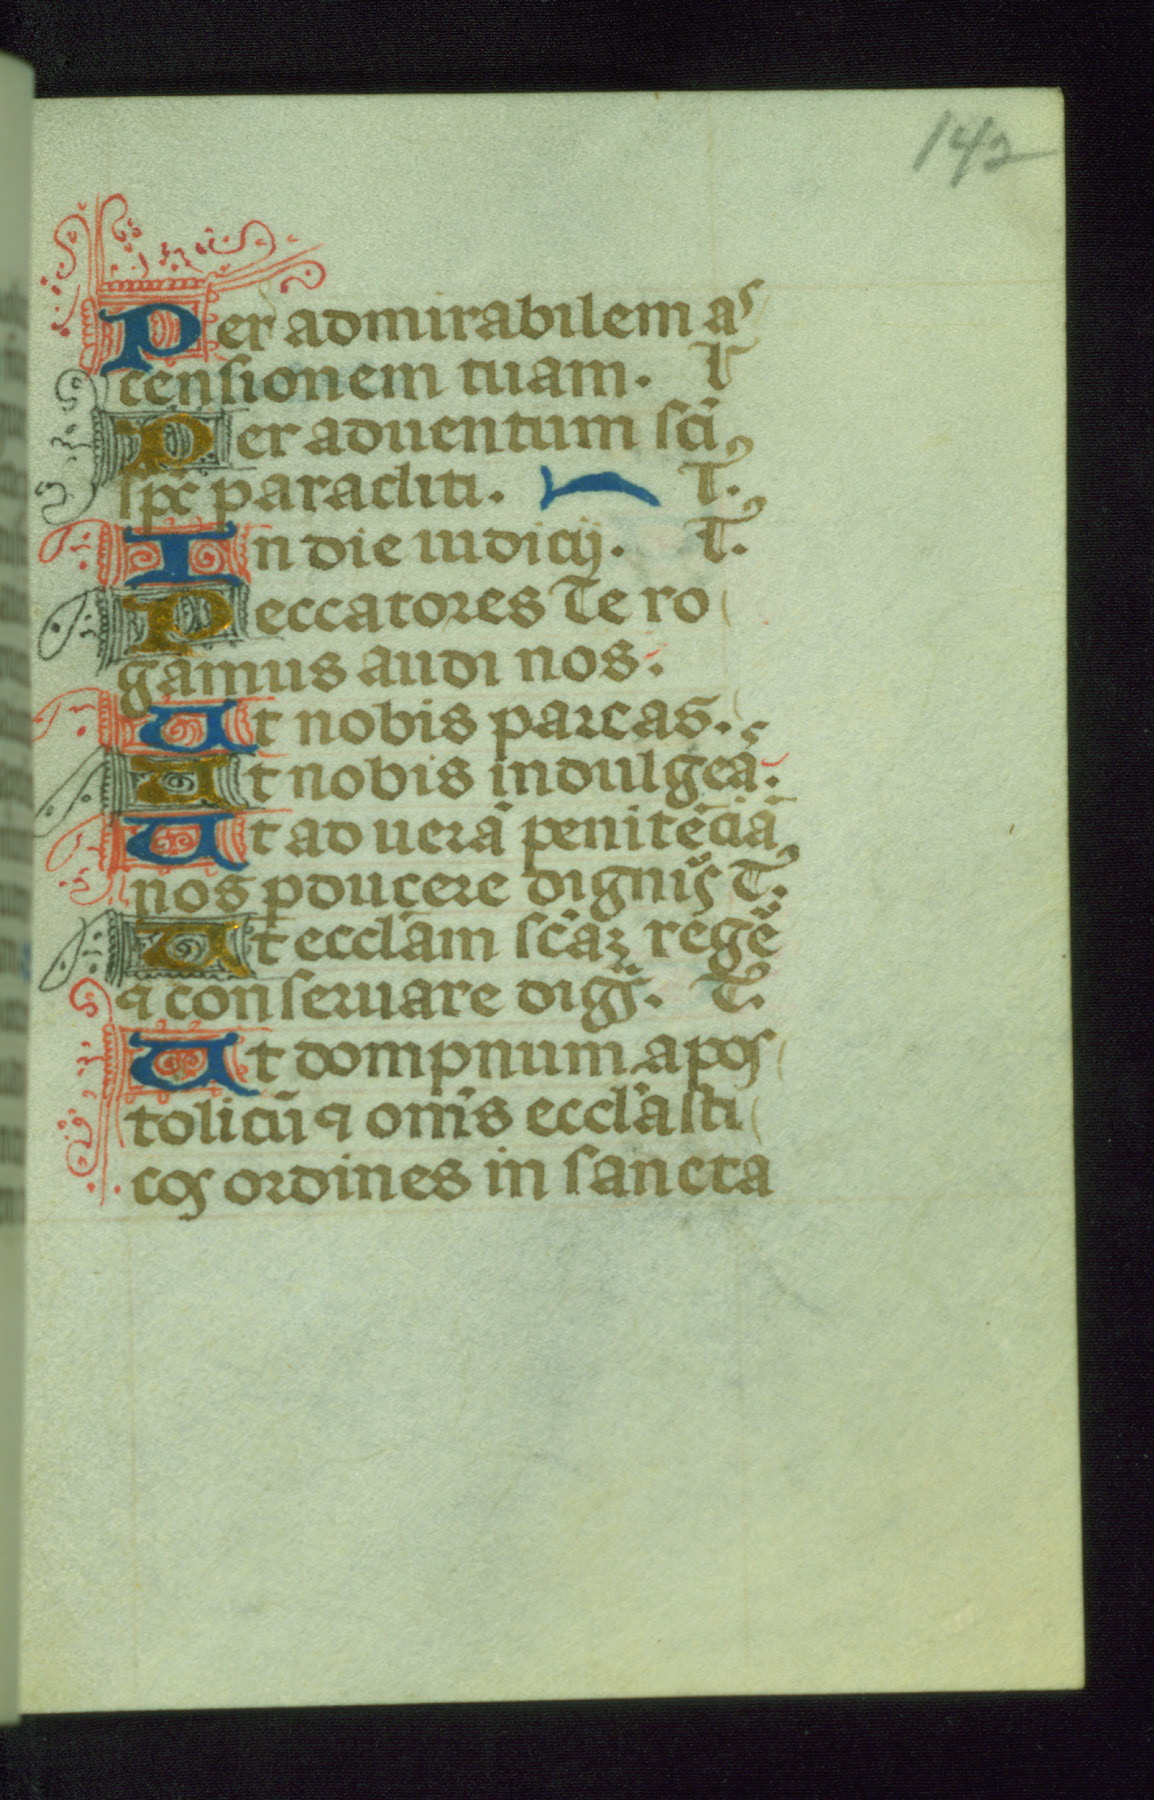 142
Per admirabilem as
censionem tuam. T
Per aduentum sc̄i
sp̄c paracliti. T.
In die iudicij. T.
Peccatores Te ro
gamus audi nos.
Ut nobis parcas.
Ut nobis indulgeā.
Ut ad uerā penitēciā
nos pducere dignīs T.
Ut eccl̄am sc̄aꝫ regē
⁊ conseruare digīs. T.
Ut dompnum apos
tolicū ⁊ om̄s eccl̄asti
cos ordines in sancta